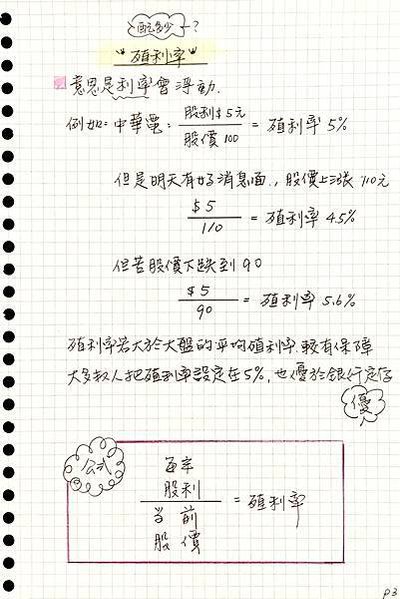 配多少?
"殖利率"
意思是利率會浮動.
例如: 中華電: 股利$5元 / 股價100 = 殖利率 5%
但是明天有好消息面, 股價上漲 110元
$5 / 110 = 殖利率 4.5%
但若股價下跌到 90
$5 / 90 = 殖利率 5.6%
殖利率若大於大盤的平均殖利率. 較有保障
大多數人把殖利率設定在5%, 也優於銀行定存
優
公式
每年
股利
當前
股價
= 殖利率
P3